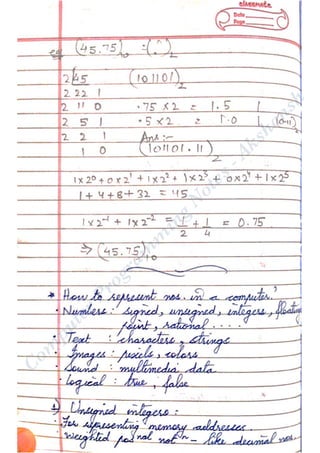 classmate
Date
Page
eg (45.75)10 = (?)2
2 45 (101101)2
2 22 1
2 11 0 .75 x 2 = 1.5 1
2 5 1 .5 x 2 = 1.0 1 (0.11)2
2 2 1 Ans:-
1 0 (101101.11)2
1x2^0 + 0x2^1 + 1x2^2 + 1x2^3 + 0x2^4 + 1x2^5
1 + 4 + 8 + 32 = 45
1x2^-1 + 1x2^-2 = 1/2 + 1/4 = 0.75
⇒ (45.75)10
* How to represent nos. in a computer?
• Numbers : signed, unsigned, integers, floating
point, rational ....
• Text : characters, strings
• Images : pixels, colors
• Sound : multimedia data
• Logical : true, false
1) Unsigned integers :
• For representing memory addresses.
• Weighted posnal notn - like decimal nos.